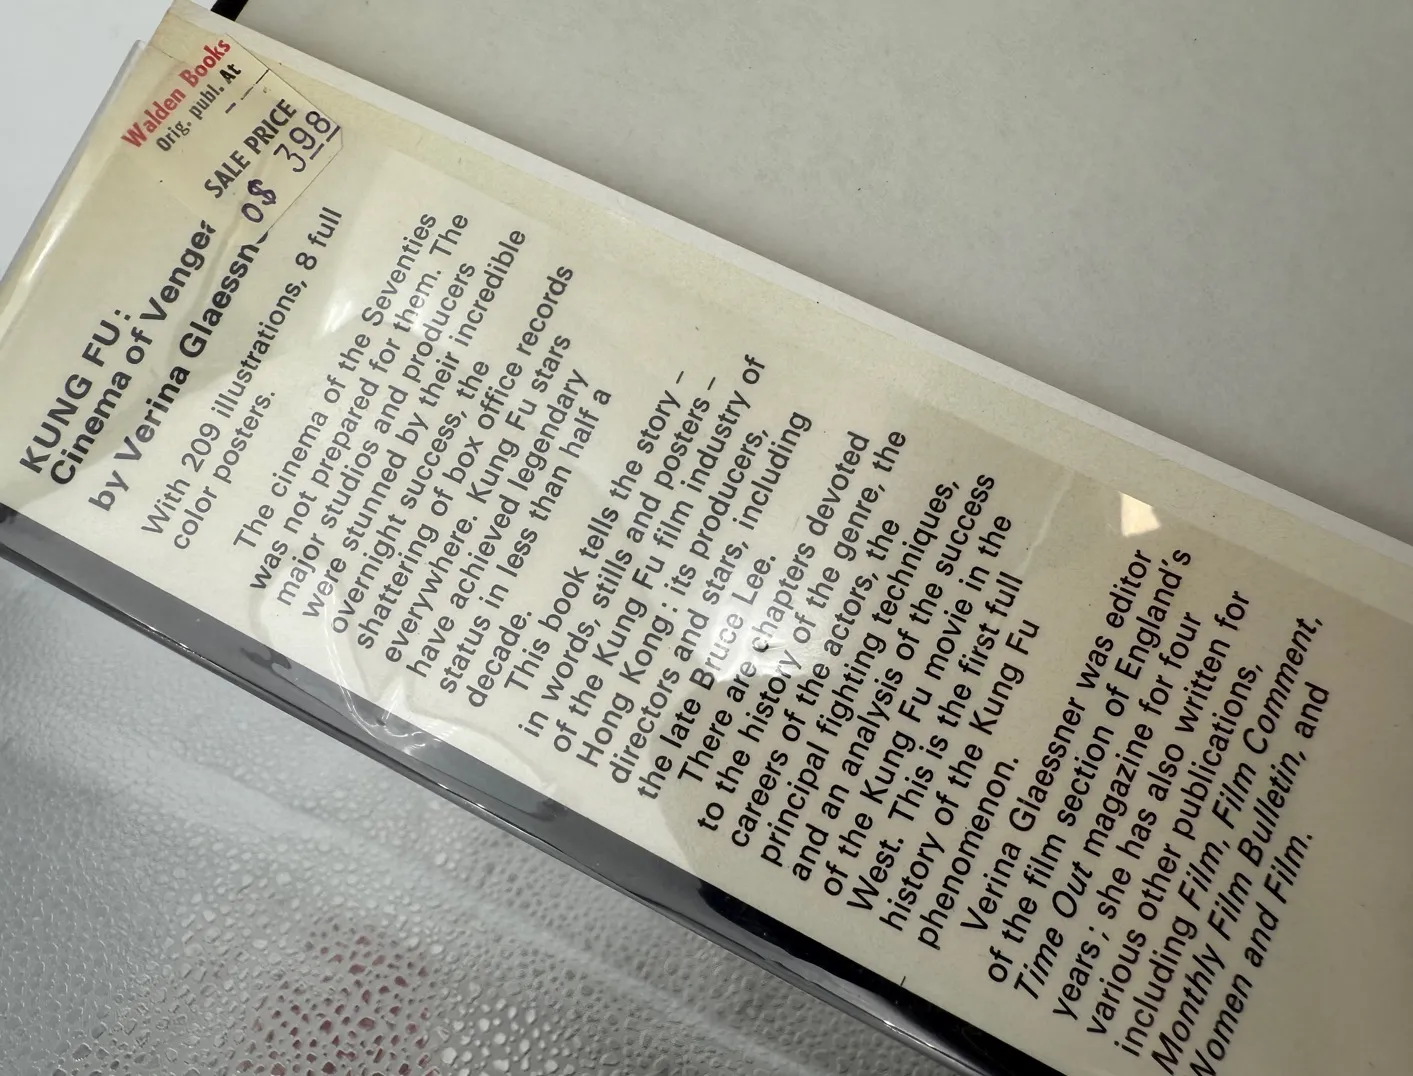 Walden Books
Orig. publ. At
SALE PRICE
0$ 3 98
KUNG FU:
Cinema of Vengea
by Verina Glaessn
With 209 illustrations, 8 full
color posters.
The cinema of the Seventies
was not prepared for them. The
major studios and producers
were stunned by their incredible
overnight success, the
shattering of box office records
everywhere. Kung Fu stars
have achieved legendary
status in less than half a
decade.
This book tells the story –
in words, stills and posters –
of the Kung Fu film industry of
Hong Kong: its producers,
directors and stars, including
the late Bruce Lee.
There are chapters devoted
to the history of the genre, the
careers of the actors, the
principal fighting techniques,
and an analysis of the success
of the Kung Fu movie in the
West. This is the first full
history of the Kung Fu
phenomenon.
Verina Glaessner was editor
of the film section of England's
Time Out magazine for four
years; she has also written for
various other publications,
including Film, Film Comment,
Monthly Film Bulletin, and
Women and Film.